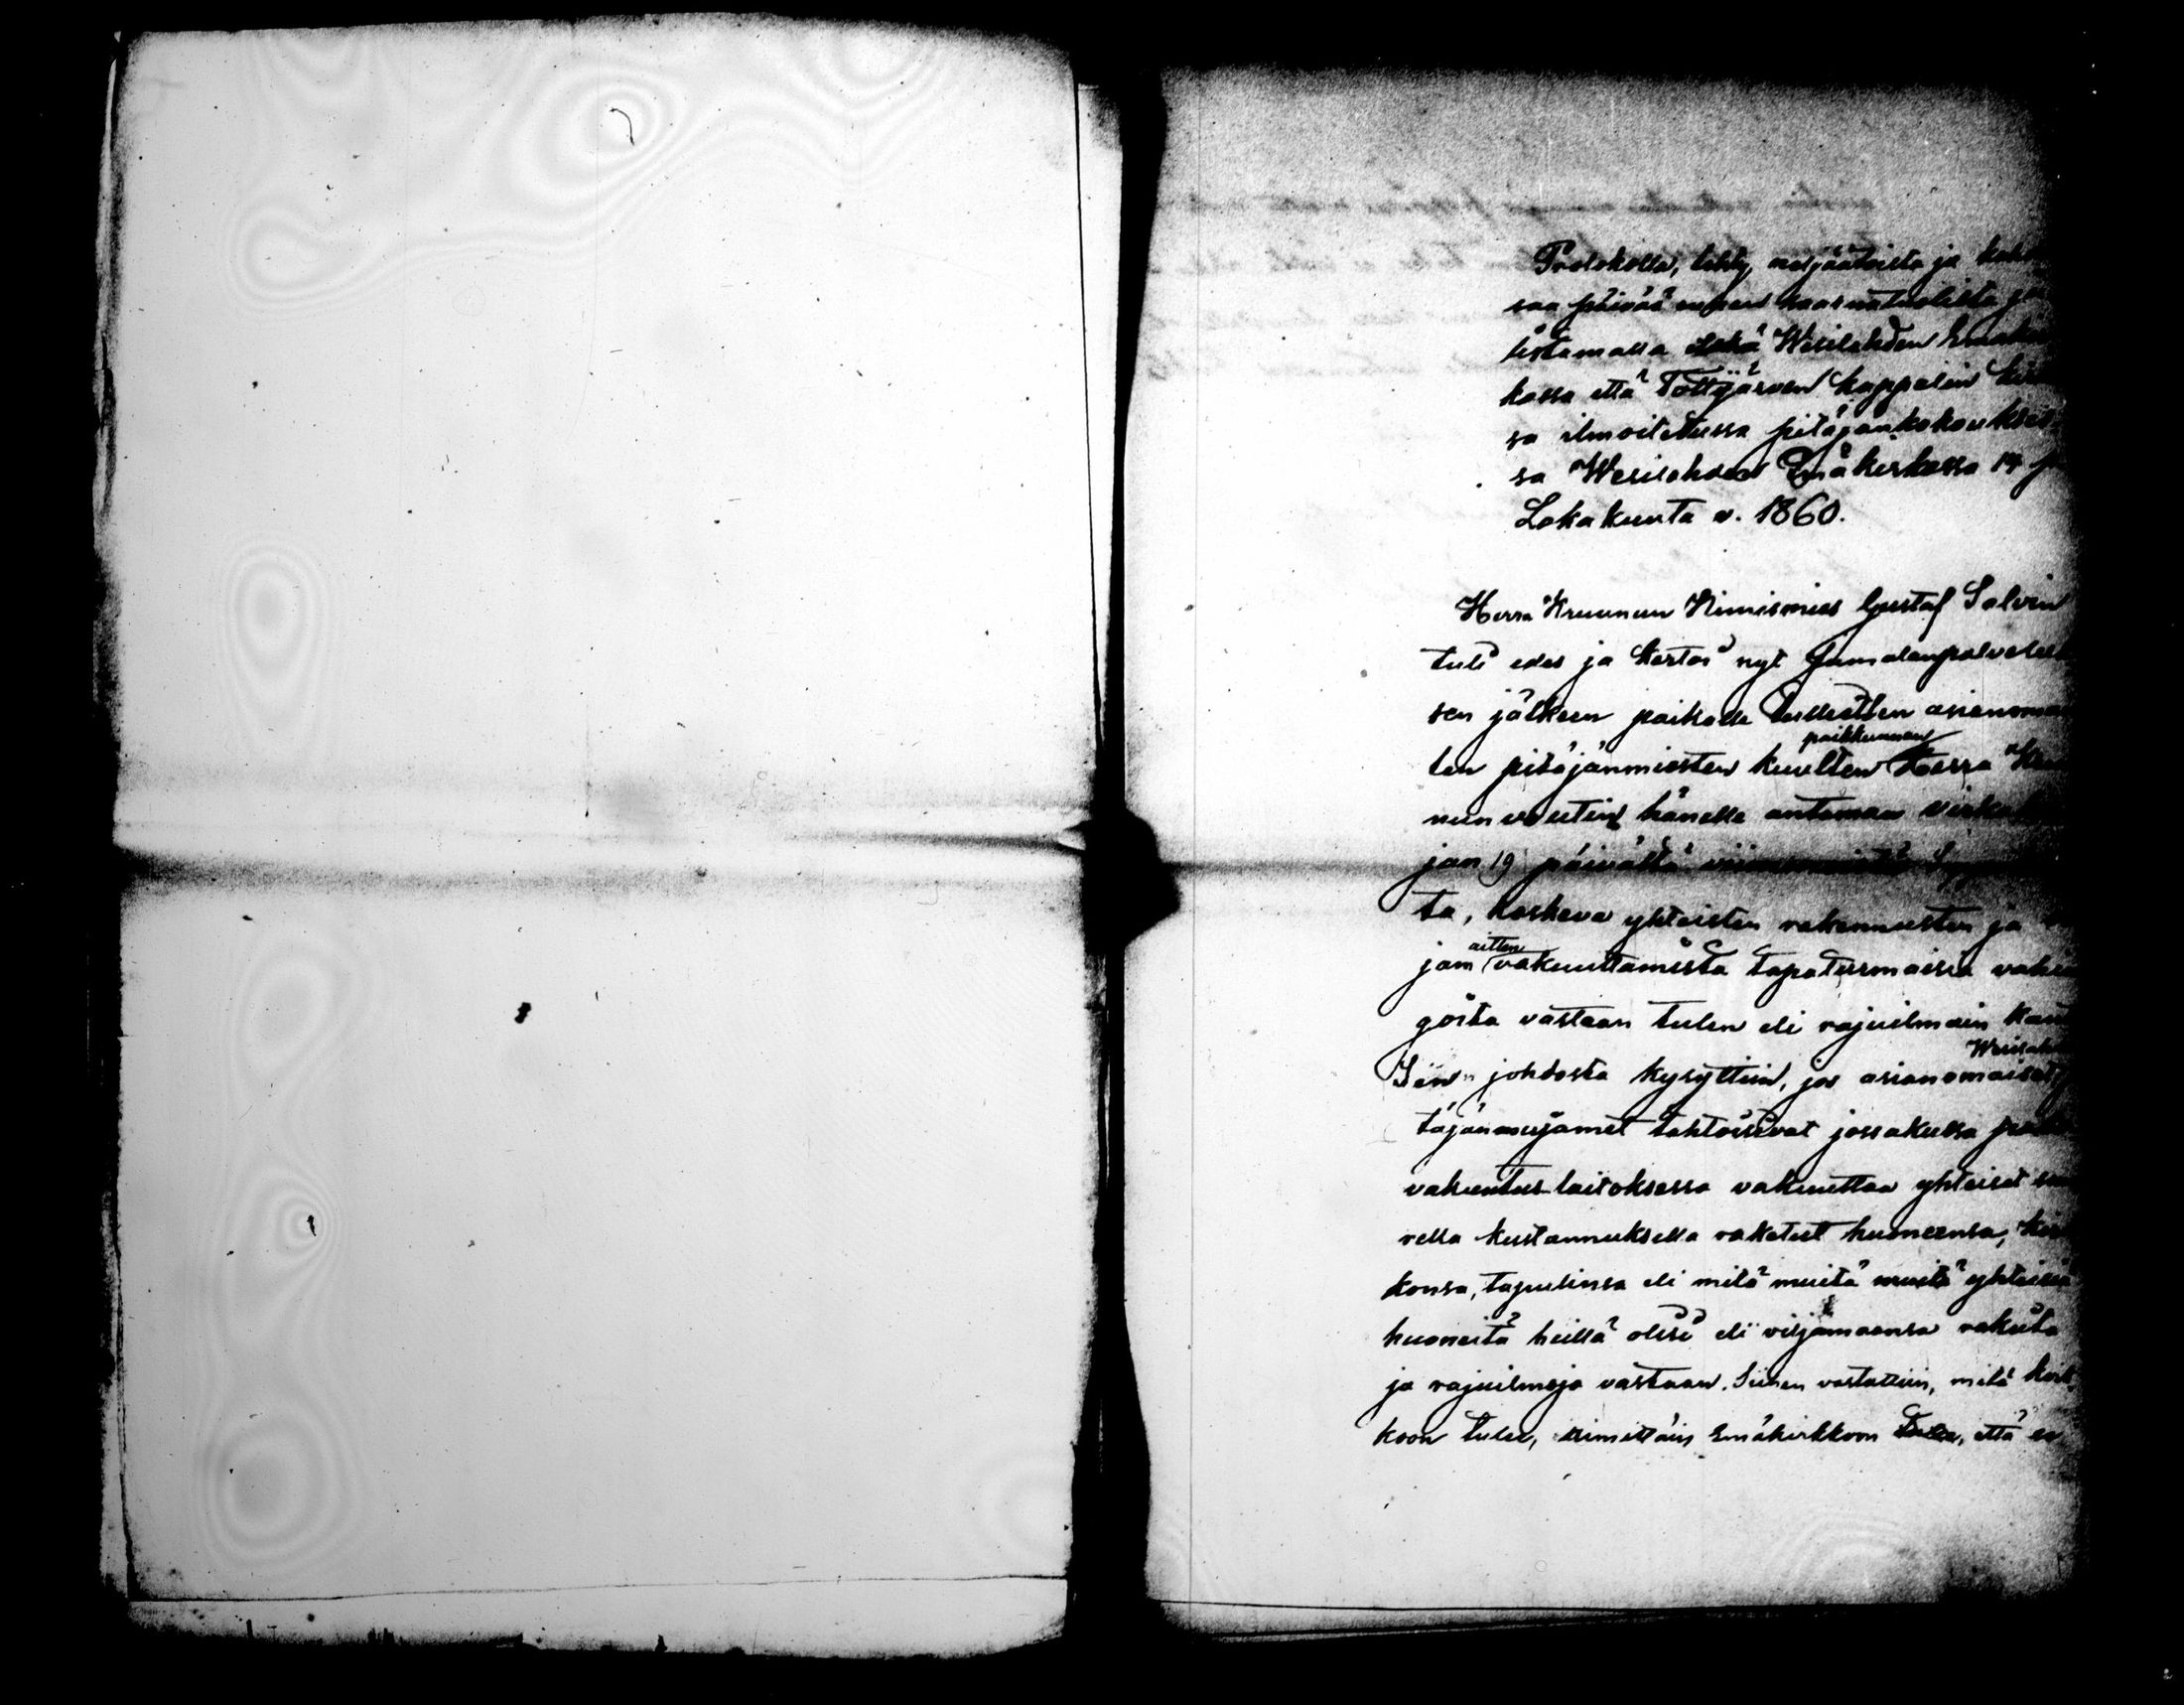 Protokolla, tehty neljäätoista ja kah
saa päivää ennen saarnatuolista ju
listamassa sekä Wesilahden Emäkir
kossa että Tottijärven kappelin kir
sa ilmoitetussa pitäjänkokoukses
sa Wesilahden Emäkirkossa 14 p
Lokakuuta v. 1860.
Herra Kruunun Nimismies Gustaf Salvin
tuli edes ja kertoi nyt Jumalanpalveluk
sen jälkeen paikalle tulleitten asianomai
ten pitäjänmiesten kuulten paikkunnan Herra Kruu
nunvoutin hänelle antaman virkakir
jan 19 päivältä viimmeistä Syys
ta, koskeva yhteisten rakennusten ja
jam aitten vakuuttamista tapaturmaisia vahin
goita vastaan tulen eli rajuilmain kau
Sen johdosta kysyttiin, jos asianomaiset Wesilah
täjänmiehet tahtoisivat jossakussa palo
vakuutus-laitoksessa vakuuttaa yhteiset suu
rella kustannuksella raketut huoneensa, kir
konsa, tapulinsa eli mitä muita muita yhteisiä
huoneita heillä olisi eli viljamaansa rakeita
ja rajuilmoja vastaan. Siihen vastattiin, mitä kirk
koon tulee, nimittäin Emäkirkkoon tulee, että se